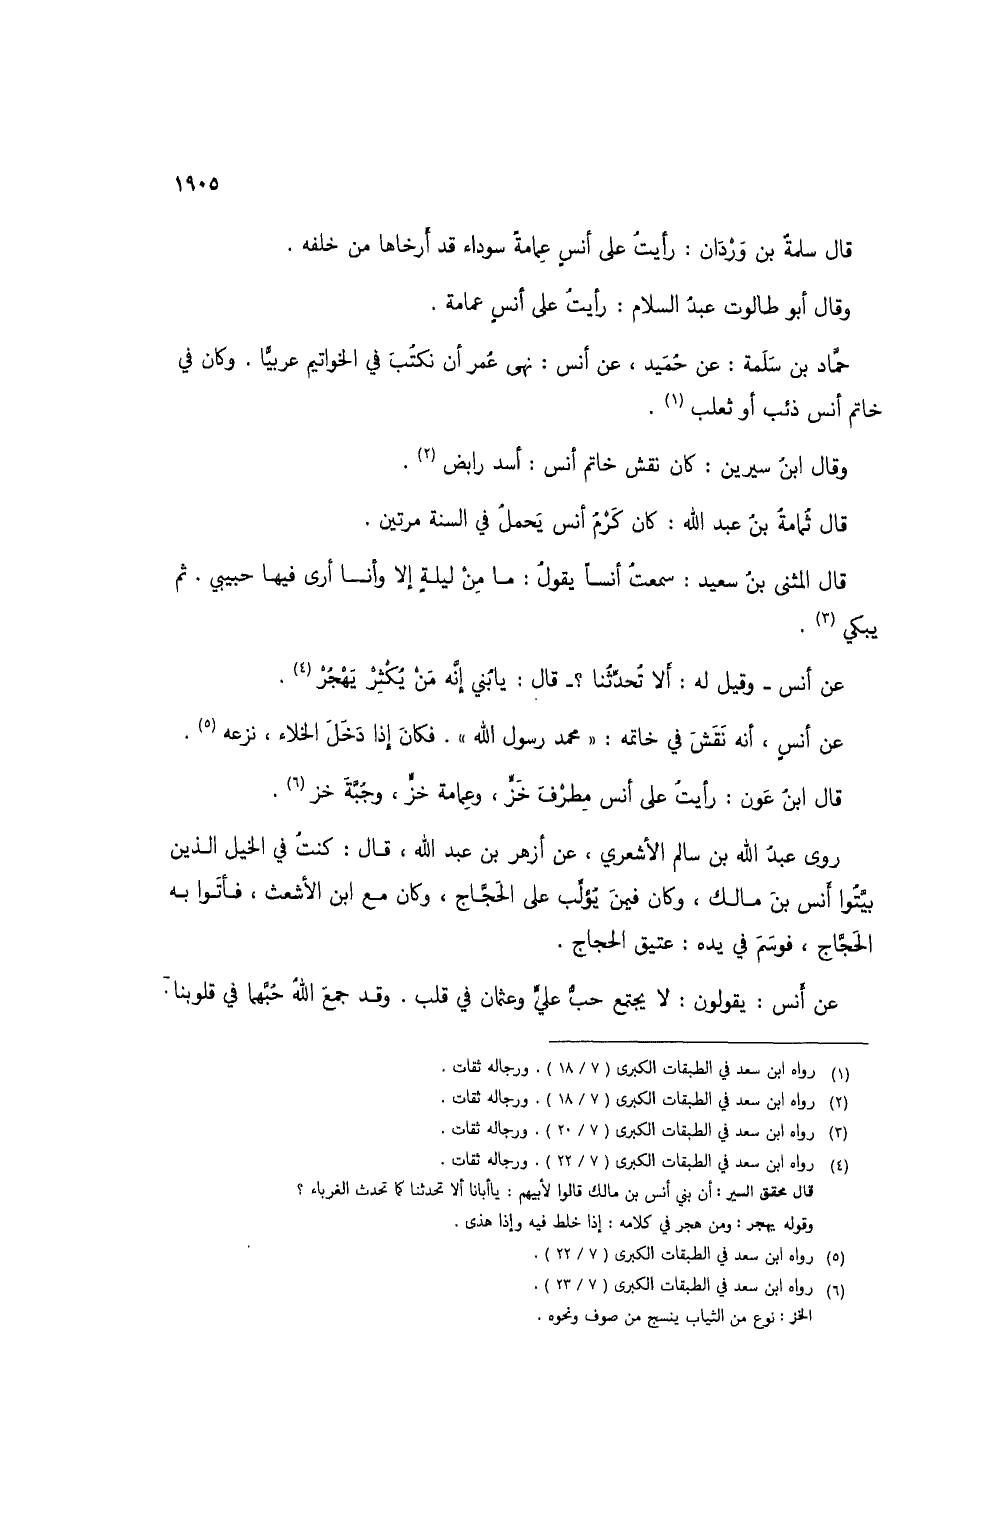 ١٩٠٥
قال سلمةُ بن وَرْدَان : رأيتُ على أنسٍ عِمامةً سوداء قد أَرخاها من خلفه .
وقال أبو طالوت عبدُ السلام : رأيتُ على أنسٍ عمامة .
حمَّاد بن سَلَمة : عن حُمَيد ، عن أنس : نهى عُمر أن نكتُبَ في الخواتيم عربيًّا . وكان في
خاتم أنس ذئب أو ثعلب (١) .
وقال ابنُ سيرين : كان نقش خاتم أنس : أسد رابض (٢) .
قال ثُمامةُ بنُ عبد الله : كان كَرْمُ أنس يَحملُ في السنة مرتين .
قال المثنى بنُ سعيد : سمعتُ أنساً يقولُ : ما مِنْ ليلةٍ إلا وأنا أرى فيها حبيبي . ثم
يبكي (٣) .
عن أنس ـ وقيل له : ألا تُحدّثُنا ؟ـ قال : يابُني إنَّه مَنْ يُكْثِرْ يَهْجُرْ (٤) .
عن أنسٍ ، أنه نَقَشَ في خاتمه : « محمد رسول الله » . فكانَ إذا دَخَلَ الخلاء ، نزعه (٥) .
قال ابنُ عَون : رأيتُ على أنس مِطرْفَ خَزٍّ ، وعِمامة خزٍّ ، وجُبَّةَ خز (٦) .
روى عبدُ الله بن سالم الأشعري ، عن أزهر بن عبد الله ، قال : كنتُ في الخيل الذين
بيَّتُوا أَنس بنَ مالك ، وكان فيمَنَ يُؤلِّب على الحَجَّاج ، وكان مع ابن الأشعث ، فأتَوا به
الحَجَّاج ، فوسَمَ في يده : عتيق الحجاج .
عن أَنس : يقولون : لا يجتمع حبُّ عليٍّ وعثمان في قلب . وقد جمعَ اللهُ حُبَّهما في قلوبنا .
(١) رواه ابن سعد في الطبقات الكبرى ( ٧ / ١٨ ) . ورجاله ثقات .
(٢) رواه ابن سعد في الطبقات الكبرى ( ٧ / ١٨ ) . ورجاله ثقات .
(٣) رواه ابن سعد في الطبقات الكبرى ( ٧ / ٢٠ ) . ورجاله ثقات .
(٤) رواه ابن سعد في الطبقات الكبرى ( ٧ / ٢٢ ) . ورجاله ثقات .
قال محقق السير : أن بني أنس بن مالك قالوا لأبيهم : ياأبانا ألا تحدثنا كما تحدث الغرباء ؟
وقوله يهجر : ومن هجر في كلامه : إذا خلط فيه وإذا هذى .
(٥) رواه ابن سعد في الطبقات الكبرى ( ٧ / ٢٢ ) .
(٦) رواه ابن سعد في الطبقات الكبرى ( ٧ / ٢٣ ) .
الخز : نوع من الثياب ينسج من صوف ونحوه .